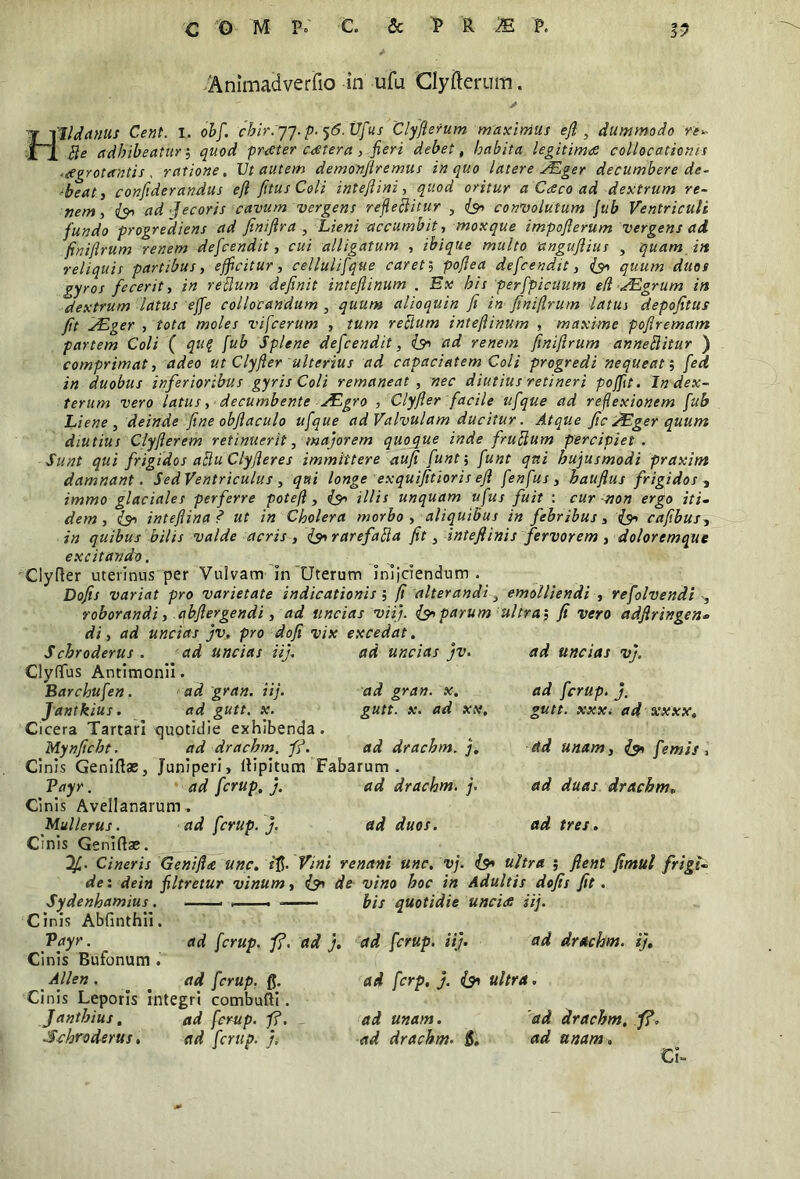 C O M P. C. & P R Æ P. 39
Animadversio in usu Clysterum.
HIldanus Cent. 1. obs. chir. 77. p. 56. Usus Clysterum maximus est, dummodo re-
cte adhibeatur; quod præter cætera, fieri debet, habita legitimæ collocationis
ægrotantis, ratione. Ut autem demonstremus in quo latere Æger decumbere de-
beat, considerandus est situs Coli intestini, quod oritur a Cæco ad dextrum re-
nem, & ad Jecoris cavum vergens reflectitur, & convolutum sub Ventriculi
fundo progrediens ad sinistra, Lieni accumbit, moxque imposterum vergens ad
sinistrum renem descendit, cui alligatum, ibique multo angustius, quam in
reliquis partibus, efficitur, cellulisque caret; postea descendit, & quum duos
gyros fecerit, in rectum definit intestinum. Ex his perspicuum est Ægrum in
dextrum latus esse collocandum, quum alioquin si in sinistrum latus depositus
sit Æger, tota moles viscerum, tum rectum intestinum, maxime postremam
partem Coli ( quę sub Splene descendit, & ad renem sinistrum annectitur )
comprimat, adeo ut Clyster ulterius ad capaciatem Coli progredi nequeat; sed
in duobus inferioribus gyris Coli remaneat, nec diutius retineri possit. In dex-
terum vero latus, decumbente Ægro, Clyster facile usque ad reflexionem sub
Liene, deinde sine obstaculo usque ad Valvulam ducitur. Atque sic Æger quum
diutius Clysterem retinuerit, majorem quoque inde fructum percipiet.
Sunt qui frigidos actu Clysteres immittere ausi sunt; sunt qui hujusmodi praxim
damnant. Sed Ventriculus, qui longe exquisitioris est sensus, haustus frigidos,
immo glaciales perferre potest, & illis unquam usus fuit : cur non ergo iti-
dem, & intestina? ut in Cholera morbo, aliquibus in febribus, & casibus,
in quibus bilis valde acris, & rarefacta sit, intestinis fervorem, doloremque
excitando.
Clyster uterinus per Vulvam in Uterum injiciendum.
Dosis variat pro varietate indicationis; si alterandi, emolliendi, resolvendi,
roborandi, abstergendi, ad uncias viij. & parum ultra; si vero adstringen-
di, ad uncias jv. pro dosi vix excedat.
Schroderus. ad uncias iij. ad uncias jv. ad uncias vj.
Clyssus Antimonii.
Barchusen. ad gran. iij. ad gran. x. ad scrup. j.
Jantkius. ad gutt. x. gutt. x. ad xx. gutt. xxx. ad xxxx.
Cicera Tartari quotidie exhibenda.
Mynsicht. ad drachm. ß. ad drachm. j. ad unam, & semis.
Cinis Genistæ, Juniperi, stipitum Fabarum.
Payr. ad scrup. j. ad drachm. j. ad duas drachm.
Cinis Avellanarum.
Mullerus. ad scrup. j. ad duos. ad tres.
Cinis Genistæ.
♃. Cineris Genistæ unc. iß. Vini renani unc. vj. & ultra; stent simul frigi-
de: dein filtretur vinum, & de vino hoc in Adultis dosis sit.
Sydenhamius. —— —— —— bis quotidie unciæ iij.
Cinis Absinthii.
Payr. ad scrup. ß. ad j. ad scrup. iij. ad drachm. ij.
Cinis Bufonum.
Allen. ad scrup. ß. ad scrp. j. & ultra.
Cinis Leporis integri combusti.
Janthius. ad scrup. ß. ad unam. ad drachm. ß.
Schroderus. ad scrup. j. ad drachm. ß. ad unam.
Ci-